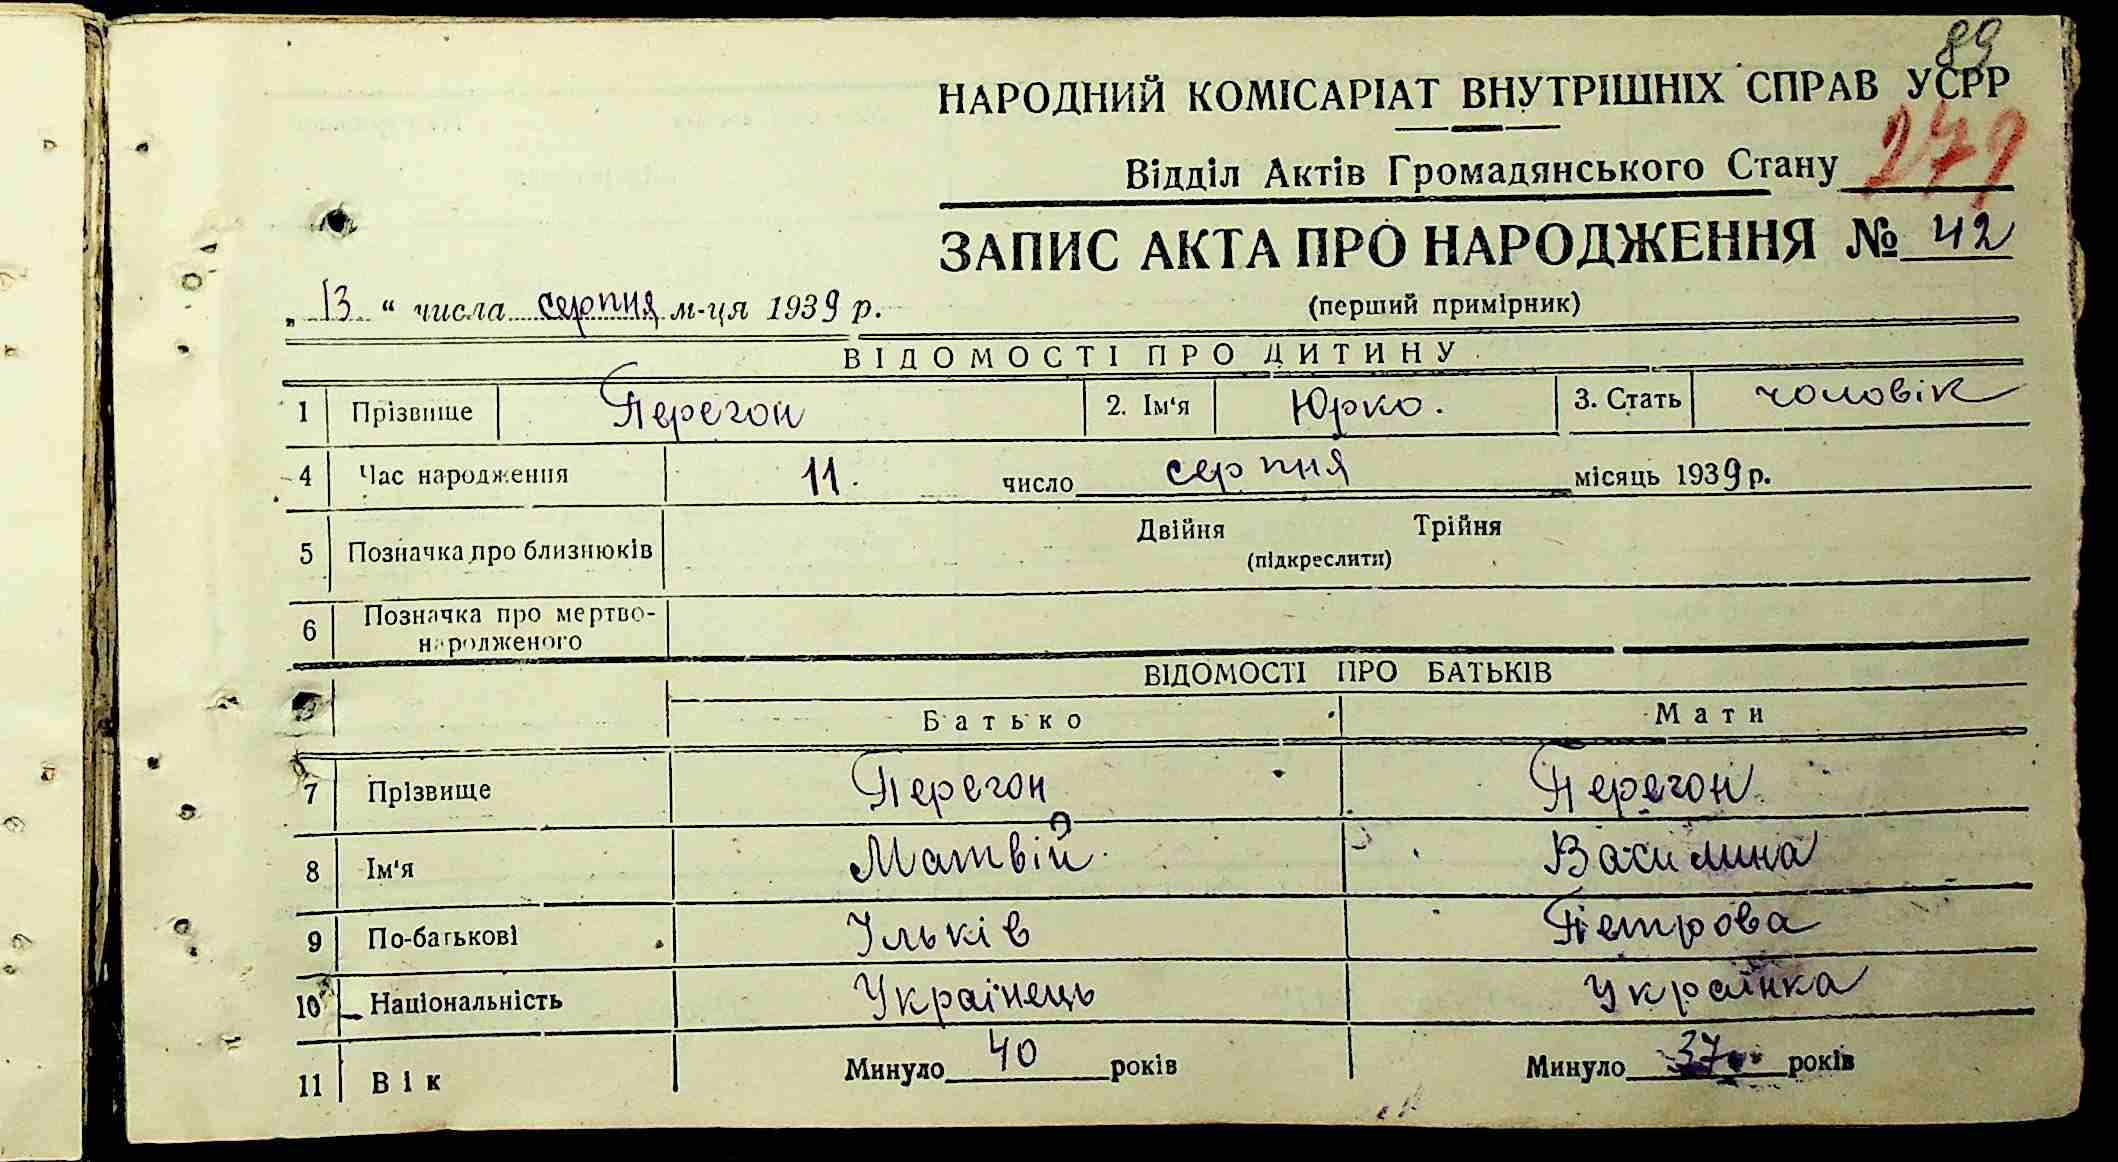 89
НАРОДНИЙ КОМІСАРІАТ ВНУТРІШНІХ СПРАВ УСРР
Відділ Актів Громадянського Стану 279
ЗАПИС АКТА ПРО НАРОДЖЕННЯ № 42
„ 13 “ числа серпня м-ця 1939 р.
(перший примірник)
ВІДОМОСТІ ПРО ДИТИНУ
1 Прізвище Перегон 2. Ім‘я Юрко. 3. Стать чоловік
4 Час народження 11. число серпня місяць 1939 р.
5 Позначка про близнюків Двійня Трійня
(підкреслити)
6 Позначка про мертво-
народженого
ВІДОМОСТІ ПРО БАТЬКІВ
Батько Мати
7 Прізвище Перегон Перегон
8 Ім‘я Матвій Василина
9 По-батькові Ільків Петрова
10 Національність Українець Українка
11 Вік Минуло 40 років Минуло 37 років